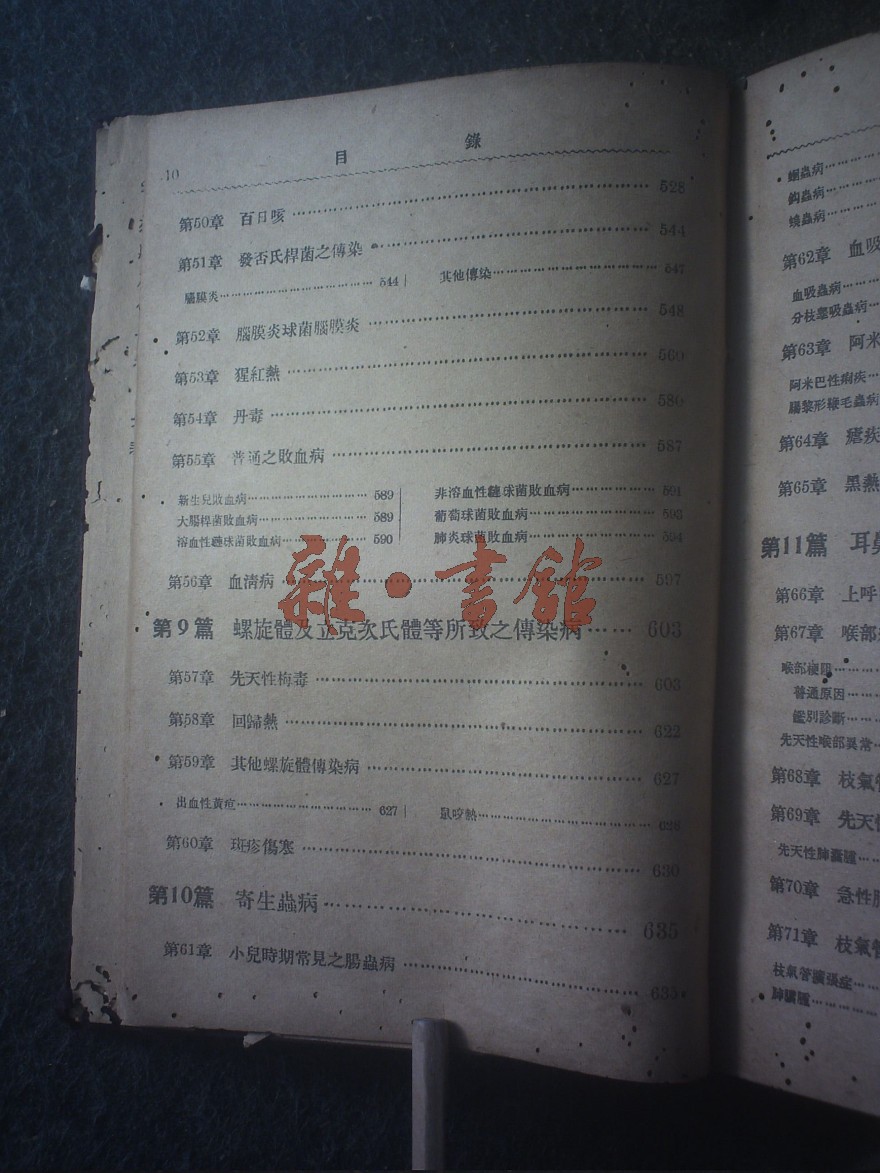 10 目 錄
第50章 百日咳 528
第51章 發否氏桿菌之傳染 544
腦膜炎 544 其他傳染 547
第52章 腦膜炎球菌腦膜炎 548
第53章 猩紅熱 560
第54章 丹毒 580
第55章 普通之敗血病 587
新生兒敗血病 589 非溶血性鏈球菌敗血病 591
大腸桿菌敗血病 589 葡萄球菌敗血病 593
溶血性鏈球菌敗血病 590 肺炎球菌敗血病 594
第56章 血清病 597
第9篇 螺旋體及立克次氏體等所致之傳染病 603
第57章 先天性梅毒 603
第58章 回歸熱 622
第59章 其他螺旋體傳染病 627
出血性黃疸 627 鼠咬熱 628
第60章 斑疹傷寒 630
第10篇 寄生蟲病 635
第61章 小兒時期常見之腸蟲病 635
雜·書館
蛔蟲病
鈎蟲病
蟯蟲病
第62章 血吸
血吸蟲病
分枝睾吸蟲病
第63章 阿米
阿米巴性痢疾
腸梨形鞭毛蟲病
第64章 瘧疾
第65章 黑熱
第11篇 耳鼻
第66章 上呼
第67章 喉部
喉部梗阻
普通原因
鑑別診斷
先天性喉部異常
第68章 枝氣管
第69章 先天
先天性肺囊腫
第70章 急性
第71章 枝氣管
枝氣管擴張症
肺膿腫